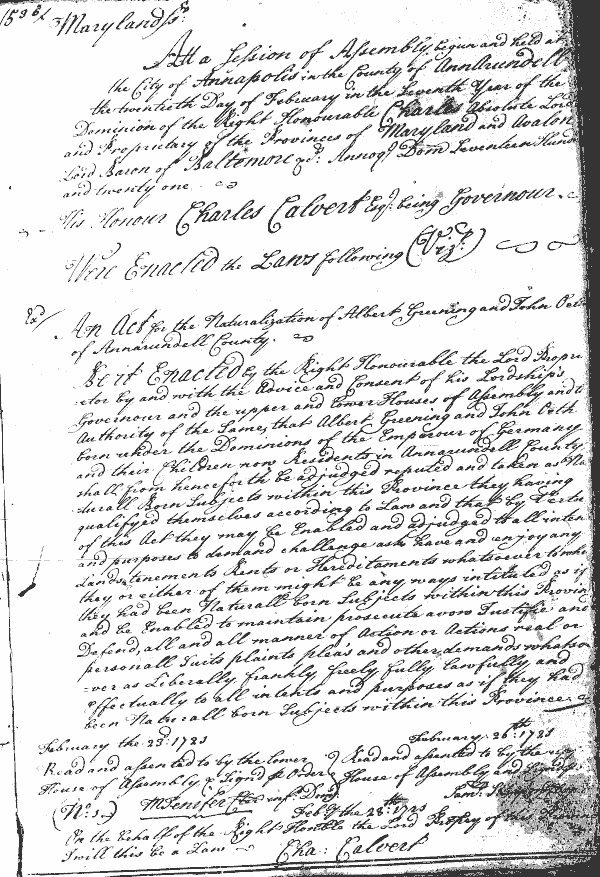 Maryland ss:
Att a Session of Assembly, begun and held at
the City of Annapolis in the County of AnnArundell
the twentieth Day of February in the Seventh Year of the
Dominion of the Right Honourable Charles Absolute Lord
and Proprietary of the Provinces of Maryland and Avalon
Lord Baron of Baltemore &c: Annoq: Dom Seventeen Hund
and twenty one
His Honour Charles Calvert Esq. being Governour.
Were Enacted the Laws following (Viz:)
An Act for the Naturalization of Albert Greening and John Oeth
of Annarundell County.
Be it Enacted by the Right Honourable the Lord Propri
etor by and with the Advice and Consent of his Lordship's
Governour and the upper and lower Houses of Assembly and
Authority of the Same, that Albert Greening and John Oeth
born under the Dominions of the Emperour of Germany
and their Children now Residents in Annarundell County
shall from henceforth be adjudged reputed and taken as Na
turall Born Subjects within this Province they having
qualified themselves according to Law and that by Vertue
of this Act they may be Enabled and adjudged to all inten
and purposes to demand challenge ask have and enjoy any
Lands, tenements Rents or Hereditaments whatsoever to
they or either of them might be any ways intituled as if
they had been Naturall born Subjects within this Provin
and be Enabled to maintain prosecute avow Justifie and
Defend, all and all manner of Action or Actions real or
personall Suits plaints pleas and other demands whatso
ver as Liberally, frankly, freely fully, lawfully, and
effectually to all intents and purposes as if they had
been Naturall born Subjects within this Province
February the 23d. 1721
Read and assented to by the lower
House of Assembly, Signed p Order
(No. 1.) MJenifer
February: 26th: 1721
Read and assented to by the
House of Assembly and
Feb: the 28th: 1721
On the behalf of the Right Honble the Lord
I will this be a Law
Cha: Calvert